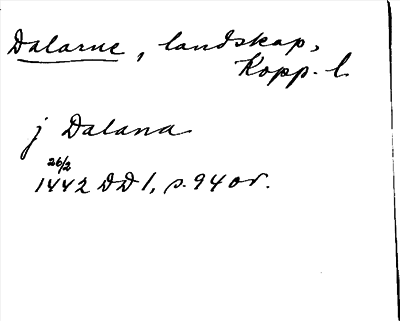 Dalarne, landskap,
Kopp. l.
j Dalana
26/2
1442 DD 1, s. 94 or.